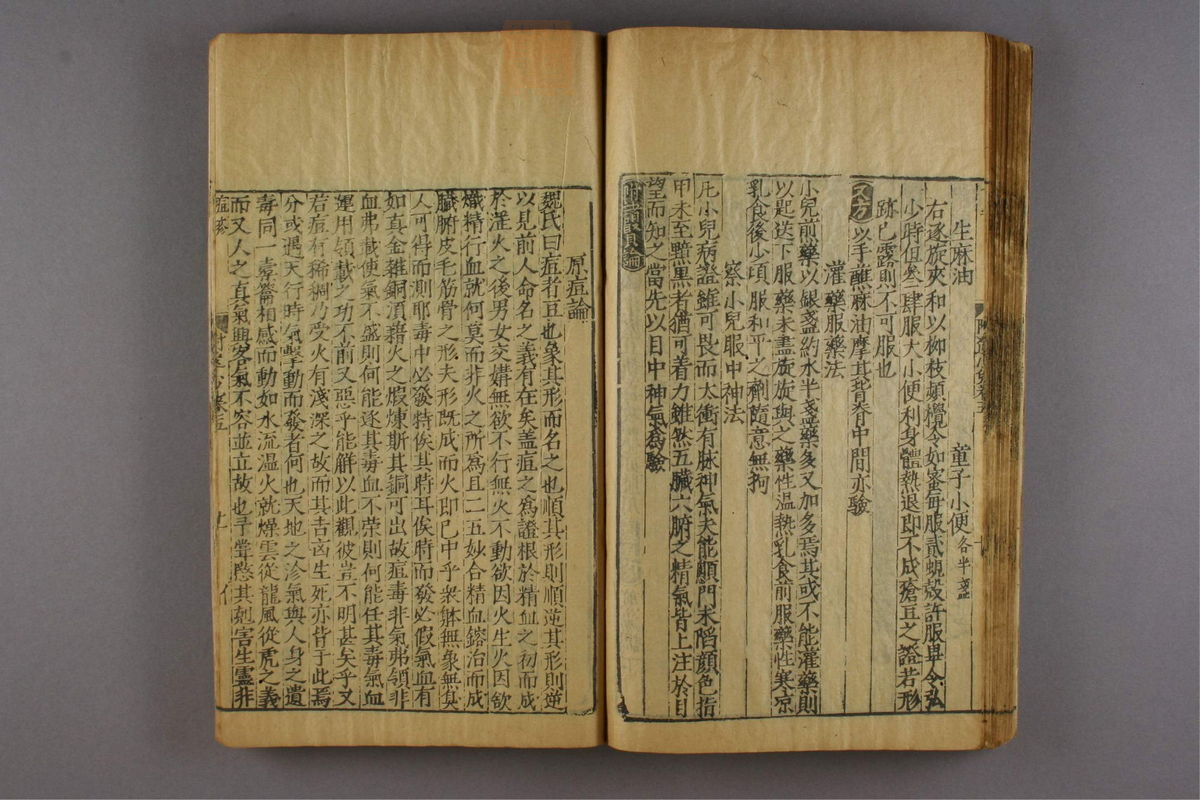 生麻油 童子小便各半盞
右逐旋夾和以柳枝頻攪令如蜜每服貳蜆殼許服畢令弘
少時但然三肆服大小便利身體熱退即不成瘡豆之證若形
跡已露則不可服也
又方 以手蘸麻油摩其背脊中間亦驗
灌藥服藥法
小兒前藥以銀盞約水半盞藥多又加多焉其或不能灌藥則
以匙送下服藥未盡旋旋與之藥性溫熱乳食前服藥性寒凉
乳食後少頃服和平之劑隨意無拘
察小兒服中神法
凡小兒病證雖可畏而太衝有脉神氣未能顖門未陷顔色指
甲未至黯黑者猶可着力雖然五臟六腑之精氣皆上注於目
望而知之當先以目中神氣為驗
原痘論
魏氏曰痘者豆也象其形而名之也順其形則順逆其形則逆
以見前人命名之義有在矣盖痘之爲證根於精血之初而成
於淫火之後男女交媾無欲不行無火不動欲因火生火因欲
熾精行血就何莫而非火之所爲且二五妙合精血鎔治而成
臟腑皮毛筋骨之形夫形既成而火即已中乎衆躰無象無臭
人可得而測耶毒中必發特俟其時耳俟時而發必假氣血有
如真金雜銅須藉火之煅煉斯其銅可出故痘毒非氣弗領非
血弗載使氣不盛則何能逐其毒血不荣則何能任其毒氣血
運用領載之功不前又惡乎能解以此觀彼豈不明甚矣乎又
若痘有稀稠乃受火有淺深之故而其吉凶生死亦皆于此焉
分或遇天行時氣擊動而發者何也天地之沴氣與人身之遺
毒同一橐籥相感而動如水流温火就燥雲從龍風從虎之義
而又人之真氣與客氣不容並立故也予嘗愍其剋害生靈非